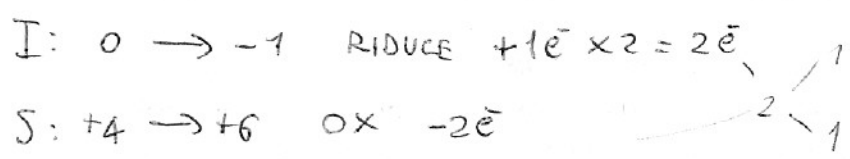 I: 0 → -1 RIDUCE +1e⁻ x2 = 2e⁻ 1
2
S: +4 → +6 OX -2e⁻ 1